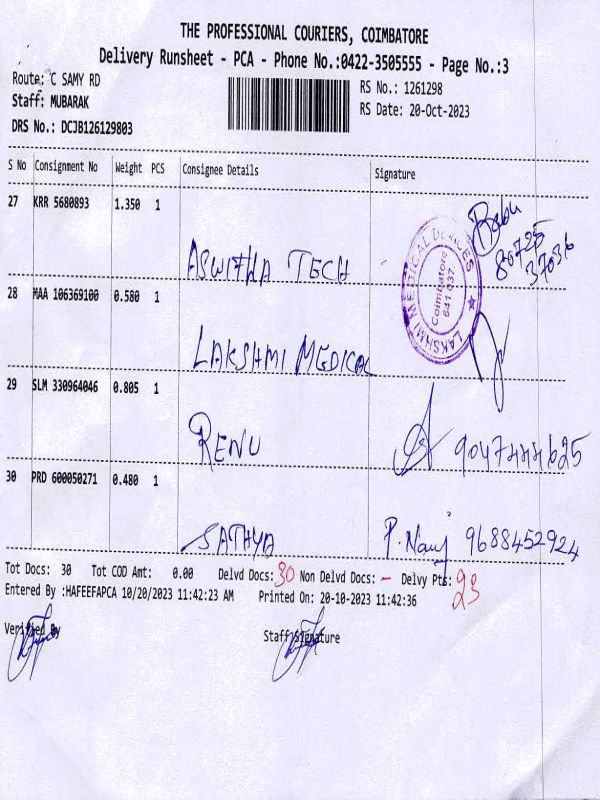 THE PROFESSIONAL COURIERS, COIMBATORE
Delivery Runsheet - PCA - Phone No.:0422-3505555 - Page No.:3
Route: C SAMY RD
RS No.: 1261298
Staff: MUBARAK
RS Date: 20-Oct-2023
DRS No.: DCJB126129803
S No Consignment No Weight PCS Consignee Details Signature
27 KRR 5680893 1.350 1
Babu
80725
37036
ASWITHA TECH
LAKSHMI MEDICAL DEVICES
Coimbatore
641 037
28 MAA 106369100 0.580 1
LAKSHMI MEDICAL
29 SLM 330964046 0.805 1
RENU 9047444625
30 PRD 600050271 0.480 1
SATHYA P. 9688452924
Tot Docs: 30 Tot COD Amt: 0.00 Delvd Docs: 30 Non Delvd Docs: - Delvy Pts: 23
Entered By :HAFEEFAPCA 10/20/2023 11:42:23 AM Printed On: 20-10-2023 11:42:36
Verified By Staff Signature